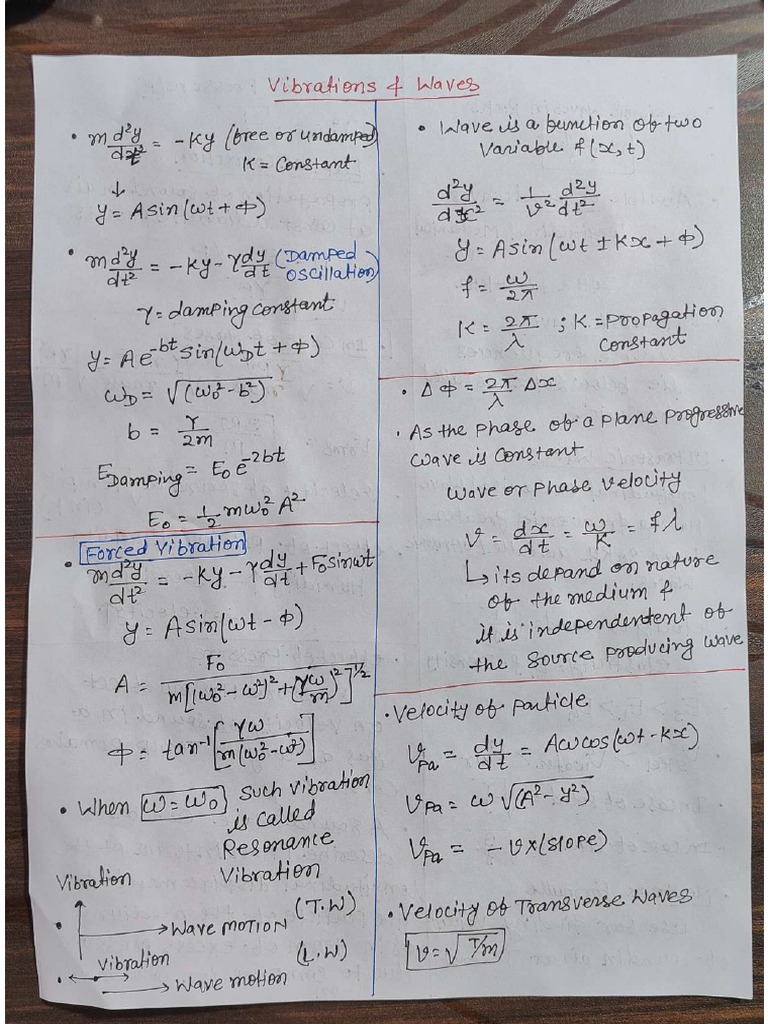 Vibrations & Waves
• m d²y/dt² = -Ky (free or undamped)
K = Constant
↓
y = A sin(ωt + Φ)
• m d²y/dt² = -Ky - γ dy/dt (Damped
oscillation)
γ = damping constant
y = Ae^-bt sin(ω_D t + Φ)
ω_D = √(ω₀² - b²)
b = γ/2m
E_Damping = E₀ e^-2bt
E₀ = 1/2 mω₀² A²
• Forced Vibration
m d²y/dt² = -Ky - γ dy/dt + F₀ sinωt
y = A sin(ωt - Φ)
A = F₀ / m[(ω₀² - ω²)² + (γω/m)²]^1/2
Φ = tan⁻¹[γω / m(ω₀² - ω²)]
• When ω = ω₀, Such vibration
is called
Resonance
Vibration
Vibration
• → Wave MOTION (T.W)
Vibration (L.W)
• → Wave motion
• Wave is a function of two
Variable f(x,t)
d²y/dx² = 1/v² d²y/dt²
y = A sin(ωt ± Kx + Φ)
f = ω/2π
K = 2π/λ ; K = Propagation
Constant
• ΔΦ = 2π/λ Δx
• As the phase of a plane progressive
wave is constant
Wave or Phase velocity
v = dx/dt = ω/K = fλ
↳ its depand on nature
of the medium &
it is independent of
the Source producing wave
• Velocity of Particle
v_Pa = dy/dt = Aω cos(ωt - Kx)
v_Pa = ω √(A² - y²)
v_Pa = - v × (slope)
• Velocity of Transverse Waves
v = √T/m